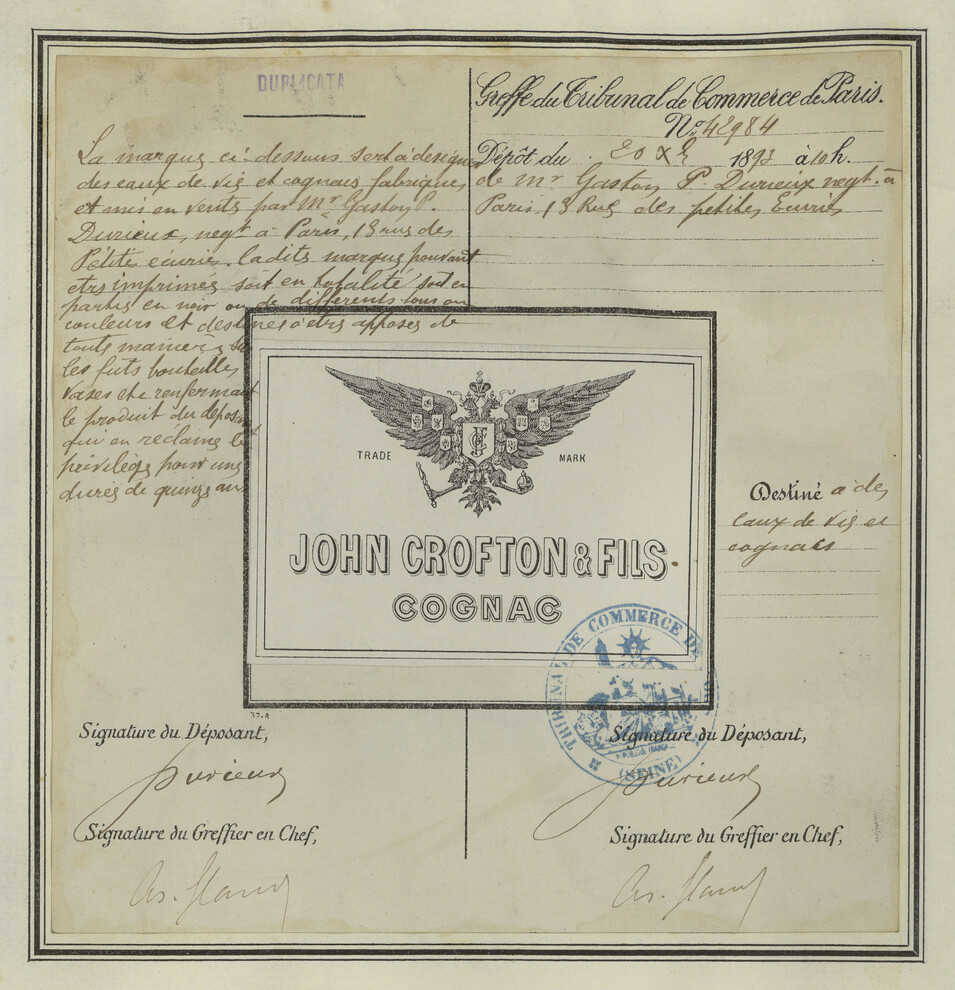 DUPLICATA
La marque ci-dessous sert à designer
des eaux de vie et cognacs fabriqués
et mis en vente par Mr Gaston P.
Durieux, negt à Paris, 13 rue des
Petites ecuries. Ladite marque pouvant
etre imprimée soit en totalité soit en
partie en noir ou de differents tons ou
couleurs et destinée à etre apposée de
toute maniere sur
les futs bouteilles
vases etc renfermant
le produit du déposant
qui en réclame le
privilège pour une
durée de quinze ans
Greffe du Tribunal de Commerce de Paris.
No. 42984
Dépôt du 20 Xbre 1893 à 10 h.
de Mr Gaston P. Durieux negt. à
Paris, 13 Rue des petites Ecuries
TRADE MARK
JOHN CROFTON & FILS.
COGNAC
Destiné à des
eaux de vie et
cognacs
TRIBUNAL DE COMMERCE DE
(SEINE)
Signature du Déposant,
Durieux
Signature du Greffier en Chef,
Signature du Déposant,
Durieux
Signature du Greffier en Chef,